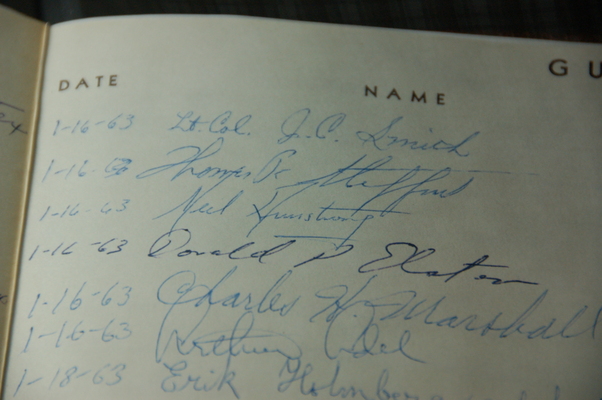 G U
DATE NAME
1-16-63 Lt. Col. J.C. Smith
1-16-63 Thomas P. Stafford
1-16-63 Neil Armstrong
1-16-63 Donald P.
1-16-63 Charles H. Marshall
1-16-63
1-18-63 Erik